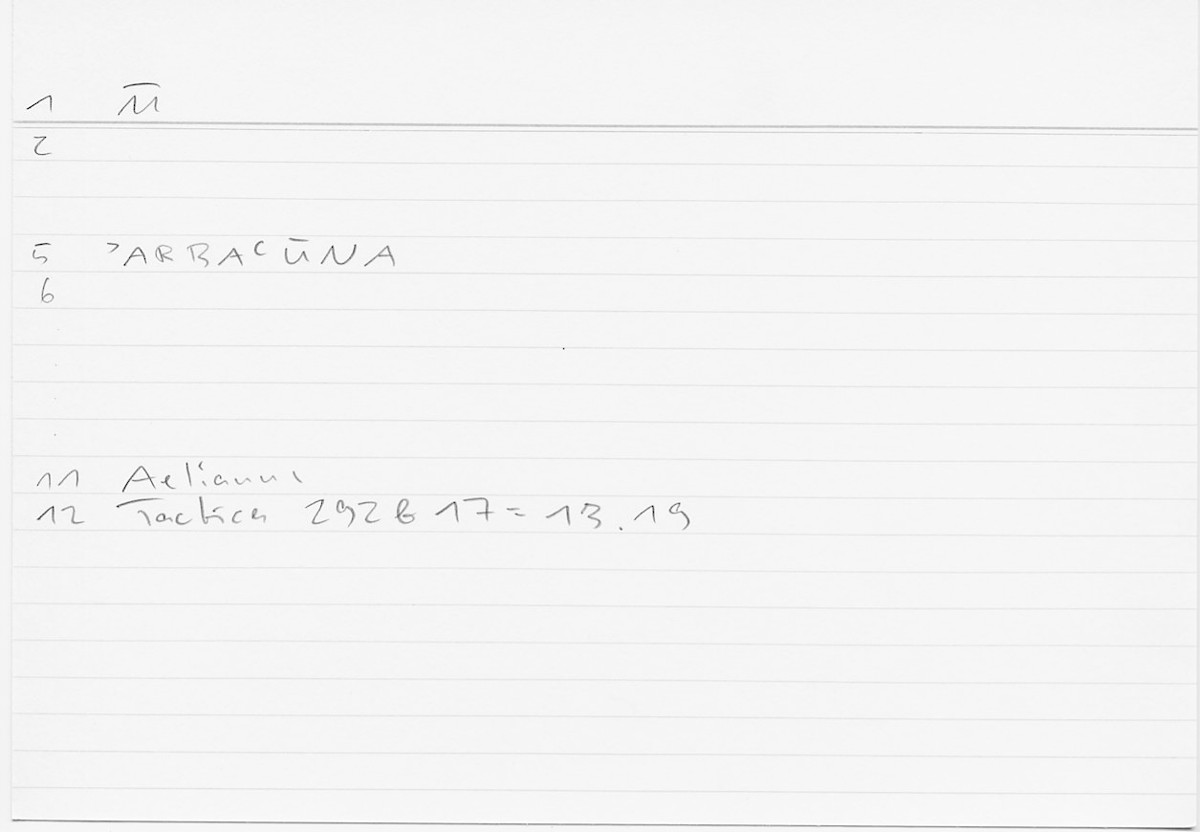 1 M̅
2
5 ʾARBAʿŪNA
6
11 Aelianus
12 Tactica 292b 17 = 13.19